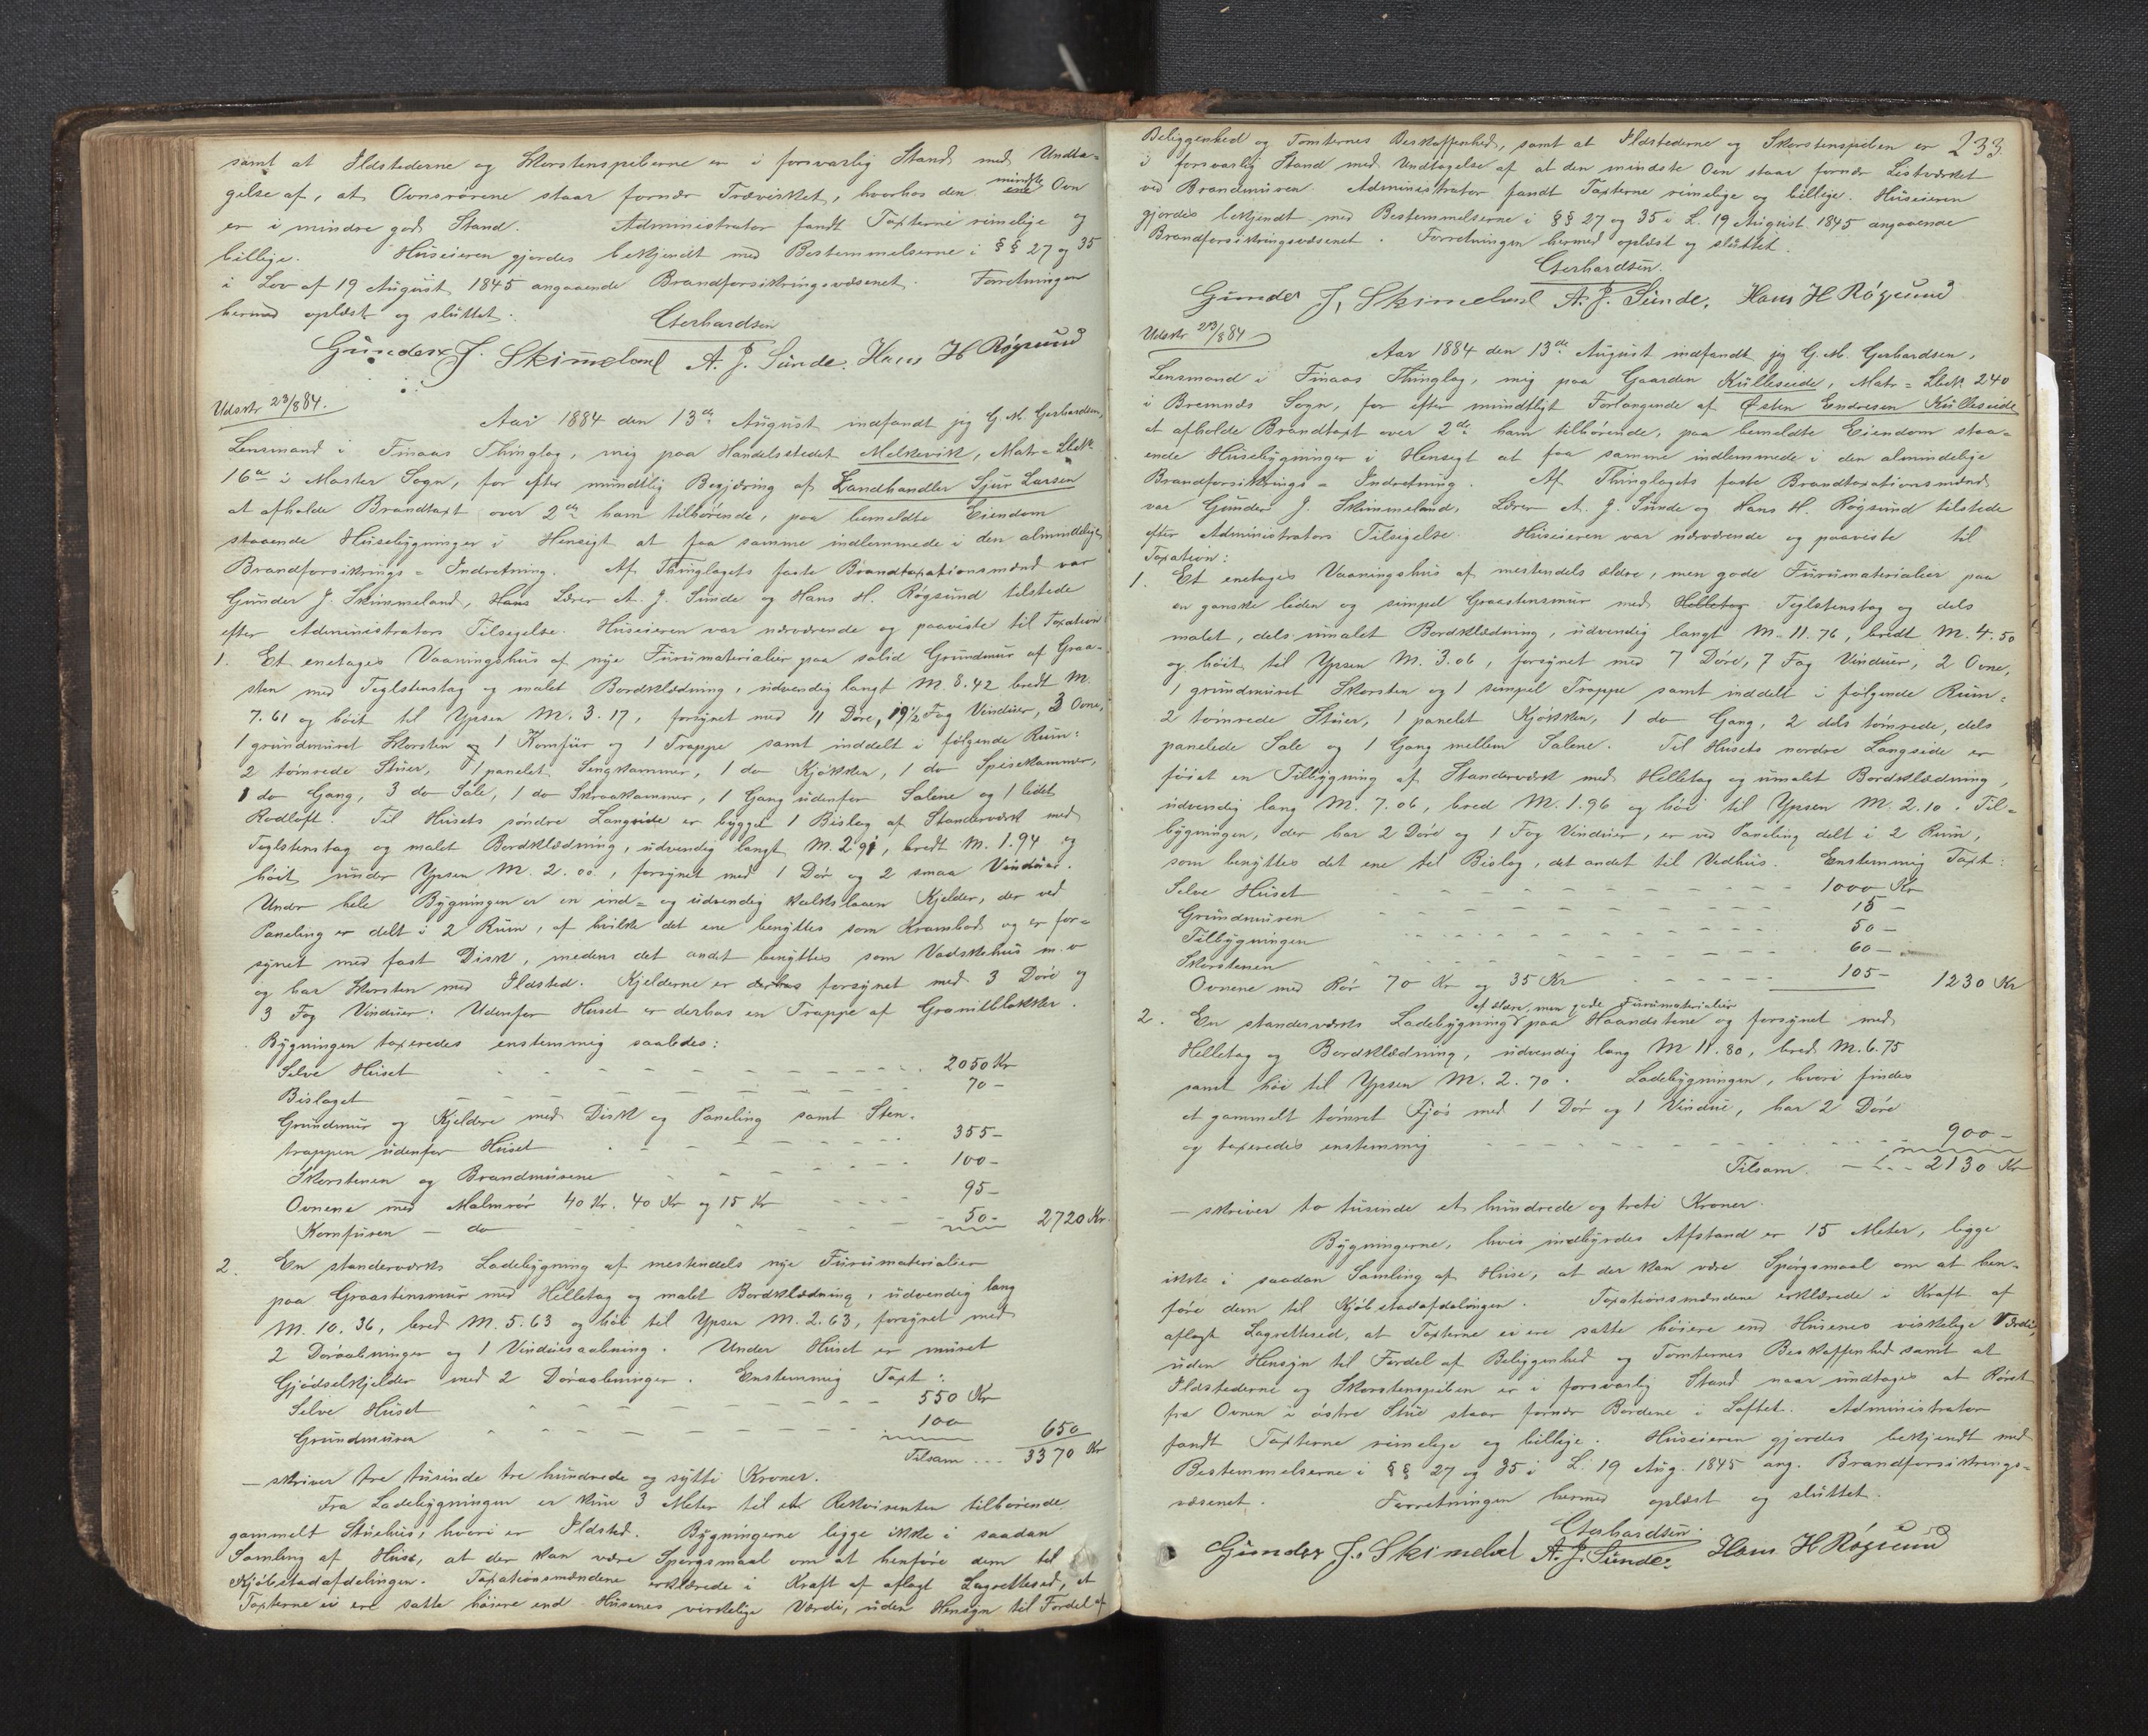 samt at Ildstederne og Skorstenspiberne er i forsvarlig Stand med Undta-
gelse af, at Ovnsrørene staar fornær Træverket, hvorhos den mindste Ovn
er i mindre god Stand. Administrator fandt Taxterne rimelige og
billige. Huseieren gjordes bekjendt med Bestemmelserne i §§ 27 og 35
i Lov af 19 August 1845 angaaende Brandforsikringsvæsenet. Forretningen
hermed oplæst og sluttet.
Gerhardsen
Gunder J. Skimeland A. J. Sunde. Hans H Røgsund
Udskr 23/8 84.
Aar 1884 den 13de August indfandt jeg G. M. Gerhardsen,
Lensmand i Finaas Thinglag, mig paa Handelsstedet Melkevik, Matr = Lbek
16a i Moster Sogn, for efter mundtlig Begjæring af Landhandler Sjur Larsen
at afholde Brandtaxt over 2de ham tilhørende, paa bemeldte Eiendom
staaende Husebygninger i Hensigt at faa samme indlemmede i den almindelige
Brandforsikrings = Indretning. Af Thinglagets faste Brandtaxationsmænd var
Gunder J. Skimmeland, Hans Lærer A. J. Sunde og Hans H. Røgsund tilstede
efter Administrators Tilsigelse. Huseieren var nærværende og paaviste til Taxation
1. Et enetages Vaaningshus af nye Furumaterialier paa solid Grundmur af Graa-
sten med Teglstenstag og malet Bordklædning, udvendig langt M. 8.42 bredt M.
7.61 og høit til Ypsen M. 3.17, forsynet med 11 Døre, 19½ Fag Vinduer, 3 Ovne,
1 grundmuret Skorsten og 1 Komfur og 1 Trappe samt inddelt i følgende Rum:
2 tømrede Stuer, 1 panelet Sengkammer, 1 do Kjøkken, 1 do Spisekammer,
1 do Gang, 3 do Sale, 1 do Skraakammer, 1 Gang udenfor Salene og 1 lidet
Rodloft. Til Husets søndre Langside er bygget 1 Bislag af Standerværk med
Teglstenstag og malet Bordklædning, udvendig langt M. 2.91, bredt M. 1.94 og
høit under Ypsen M. 2.00, forsynet med 1 Dør og 2 smaa Vinduer.
Under hele Bygningen er en ind= og udvendig kalkslaaen Kjelder, der ved
Paneling er delt i 2 Rum, af hvilke det ene benyttes som Krambod og er for=
synet med fast Disk, medens det andet benyttes som Vadskehus m. v
og har Skorsten med Ildsted. Kjelderne er derhos forsynet med 3 Døre og
3 Fag Vinduer. Udenfor Huset er derhos en Trappe af Granitblokker.
Bygningen taxeredes enstemmig saaledes:
Selve Huset - - - - - - - - 2050 Kr
Bislaget - - - - - - - - 70 -
Grundmur og Kjeldere med Disk og Paneling samt Sten-
trappen udenfor Huset - - - - - - 355 -
Skorstenen og Brandmurene - - - - - - 100 -
Ovnene med Malmrør 40 Kr. 40 Kr og 15 Kr - - - - 95 -
Komfuren - do - - - - - 50 - 2720 Kr.
2. En standerværks Ladebygning af mestendels nye Furumaterialier
paa Graastensmur med Helletag og malet Bordklædning, udvendig lang
M. 10.36, bred M. 5.63 og høi til Ypsen M. 2.63, forsynet med
2 Døraabninger og 1 Vinduesaabning. Under Huset er muret
Gjødselkjelder med 2 Døraabninger. Enstemmig Taxt:
Selve Huset - - - - - - - 550 Kr
Grundmuren - - - - - - - 100 650
Tilsam ... 3370 Kr
- skriver tre tusinde tre hundrede og sytti Kroner.
Fra Ladebygningen er kun 3 Meter til et Rekvirenten tilhørende
gammelt Stuehus, hvori er Ildsted. Bygningerne ligge ikke i saadan
Samling af Huse, at der kan være Spørgsmaal om at henføre dem til
Kjøbstadafdelingen. Taxationsmændene erklærede i Kraft af aflagt Lagrettesed, at
Taxterne ei ere satte høiere end Husenes virkelige Værdi, uden Hensyn til Fordel af
233
Beliggenhed og Tomternes Beskaffenhed, samt at Ildstederne og Skorstenspiben er
i forsvarlig Stand med Undtagelse af at den mindste Ovn staar fornær Listværket
ved Brandmuren. Administrator fandt Taxterne rimelige og billige. Huseieren
gjordes bekjendt med Bestemmelserne i §§ 27 og 35 i L. 19 August 1845 angaaende
Brandforsikringsvæsenet. Forretningen hermed oplæst og sluttet.
Gerhardsen.
Gunder J. Skimeland A. J. Sunde. Hans H Røgsund
Udskr 23/8 84
Aar 1884 den 13de August indfandt jeg G. M. Gerhardsen,
Lensmand i Finaas Thinglag, mig paa Gaarden Kulleseide, Matr = Lbek 240
i Bremnæs Sogn, for efter mundtligt Forlangende af Østen Endresen Kulleseide
at afholde Brandtaxt over 2de ham tilhørende, paa bemeldte Eiendom staa=
ende Husebygninger i Hensigt at faa samme indlemmede i den almindelige
Brandforsikrings = Indretning. Af Thinglagets faste Brandtaxationsmænd
var Gunder J. Skimmeland, Lærer A. J. Sunde og Hans H. Røgsund tilstede
efter Administrators Tilsigelse. Huseieren var nærværende og paaviste til
Taxation:
1. Et enetages Vaaningshus af mestendels ældre, men gode Furumaterialier paa
en ganske liden og simpel Graastensmur med Helletag Teglstenstag og dels
malet, dels umalet Bordklædning, udvendig langt M. 11.76, bredt M. 4.50
og høit til Ypsen M. 3.06, forsynet med 7 Døre, 7 Fag Vinduer, 2 Ovne,
1 grundmuret Skorsten og 1 simpel Trappe samt inddelt i følgende Rum:
2 tømrede Stuer, 1 panelet Kjøkken, 1 do Gang, 2 dels tømrede, dels
panelede Sale og 1 Gang mellem Salene. Til Husets nordre Langside er
føiet en Tilbygning af Standerværk med Helletag og umalet Bordklædning,
udvendig lang M. 7.06, bred M. 1.96 og høi til Ypsen M. 2.10. Til=
bygningen, der har 2 Døre og 1 Fag Vinduer, er ved Paneling delt i 2 Rum,
som benyttes det ene til Bislag, det andet til Vedhus. Enstemmig Taxt:
Selve Huset - - - - - - - 1000 Kr
Grundmuren - - - - - - - 15 -
Tilbygningen - - - - - - - 50 -
Skorstenen - - - - - - - 60 -
Ovnene med Rør 70 Kr og 35 Kr - - - - - 105 - 1230 Kr
af ældre, men gode Furumaterialier
2. En standerværks Ladebygning paa Haandstene og forsynet med
Helletag og Bordklædning, udvendig lang M 11.80, bred M. 6.75
samt høi til Ypsen M. 2.70. Ladebygningen, hvori findes
et gammelt tømret Fjøs med 1 Dør og 1 Vindue, har 2 Døre
og taxeredes enstemmig - - - - - - - 900 -
Tilsam. - - - 2130 Kr
- skriver to tusinde et hundrede og treti Kroner.
Bygningerne, hvis indbyrdes Afstand er 15 Meter, ligge
ikke i saadan Samling af Huse, at der kan være Spørgsmaal om at hen-
føre dem til Kjøbstadafdelingen. Taxationsmændene erklærede i Kraft af
aflagt Lagrettesed, at Taxterne ei ere satte høiere end Husenes virkelige Værdi,
uden Hensyn til Fordel af Beliggenhed og Tomternes Beskaffenhed samt at
Ildstederne og Skorstenspiben er i forsvarlig Stand naar undtages at Røret
fra Ovnen i østre Stue staar fornær Bordene i Loftet. Administrator
fandt Taxterne rimelige og billige. Huseieren gjordes bekjendt med
Bestemmelserne i §§ 27 og 35 i L. 19 Aug. 1845 ang. Brandforsikrings=
væsenet. Forretningen hermed oplæst og sluttet.
Gerhardsen.
Gunder J. Skimeland A. J. Sunde. Hans H Røgsund